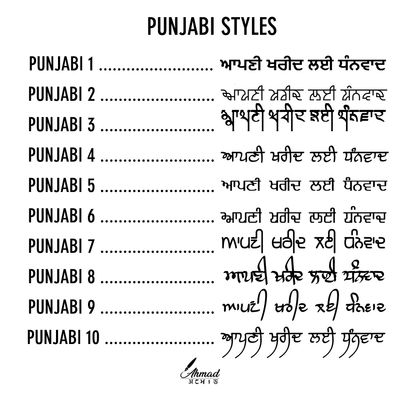 PUNJABI STYLES
PUNJABI 1 ........................ ਆਪਣੀ ਖਰੀਦ ਲਈ ਧੰਨਵਾਦ
PUNJABI 2 ........................ ਆਪਣੀ ਖਰੀਦ ਲਈ ਧੰਨਵਾਦ
PUNJABI 3 ........................ ਆਪਣੀ ਖਰੀਦ ਲਈ ਧੰਨਵਾਦ
PUNJABI 4 ........................ ਆਪਣੀ ਖਰੀਦ ਲਈ ਧੰਨਵਾਦ
PUNJABI 5 ........................ ਆਪਣੀ ਖਰੀਦ ਲਈ ਧੰਨਵਾਦ
PUNJABI 6 ........................ ਆਪਣੀ ਖਰੀਦ ਲਈ ਧੰਨਵਾਦ
PUNJABI 7 ........................ ਆਪਣੀ ਖਰੀਦ ਲਈ ਧੰਨਵਾਦ
PUNJABI 8 ........................ ਆਪਣੀ ਖਰੀਦ ਲਈ ਧੰਨਵਾਦ
PUNJABI 9 ........................ ਆਪਣੀ ਖਰੀਦ ਲਈ ਧੰਨਵਾਦ
PUNJABI 10 ...................... ਆਪਣੀ ਖਰੀਦ ਲਈ ਧੰਨਵਾਦ
Ahmad